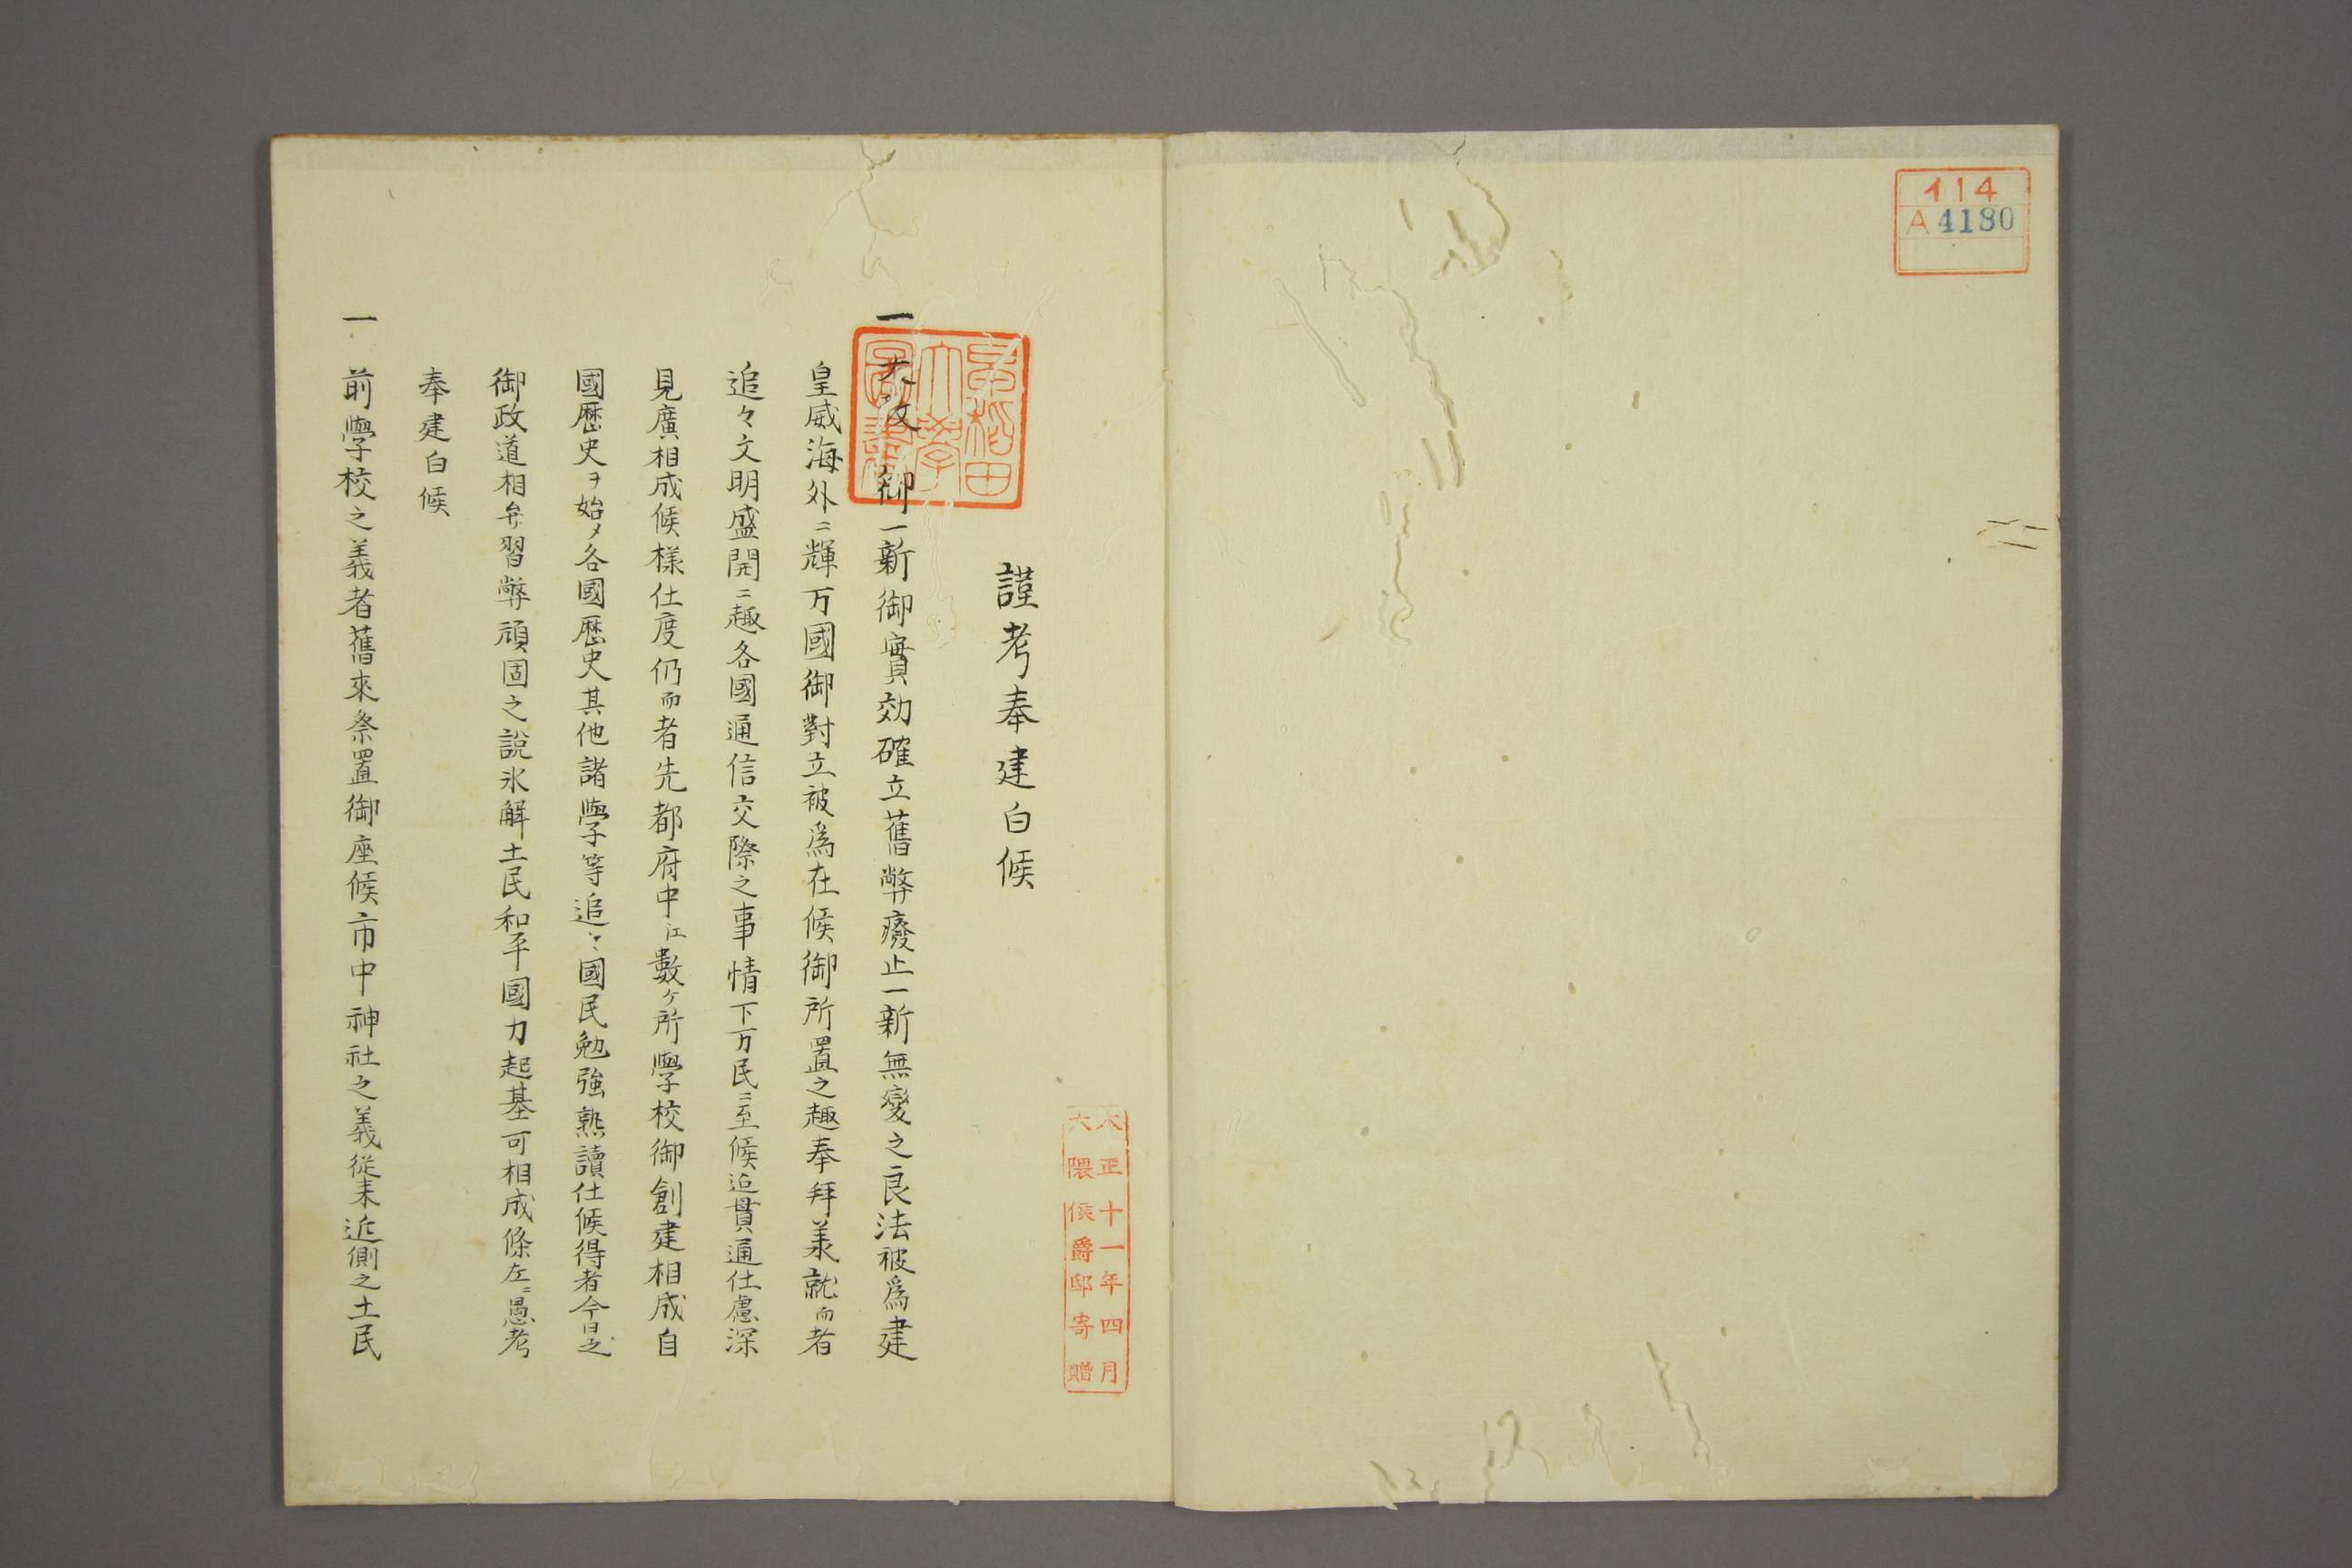 イ14
A 4180
大正十一年四月
大隈侯爵邸寄贈
早稲田
大學
圖書
謹考奉建白候
一 大政御一新御實効確立舊弊癈止一新無變之良法被爲建
皇威海外ニ輝万國御對立被爲在候御所置之趣奉拜美就而者
追々文明盛開ニ趣各國通信交際之事情下万民ニ至候迄貫通仕慮深
見廣相成候樣仕度仍而者先都府中江數ヶ所學校御創建相成自
國歴史ヲ始メ各國歴史其他諸學等追々國民勉強熟讀仕候得者今日之
御政道相弁習弊頑固之説氷解土民和平國力起基可相成條左ニ愚考
奉建白候
一 前學校之義者舊來祭置御座候市中神社之義従来近側之土民